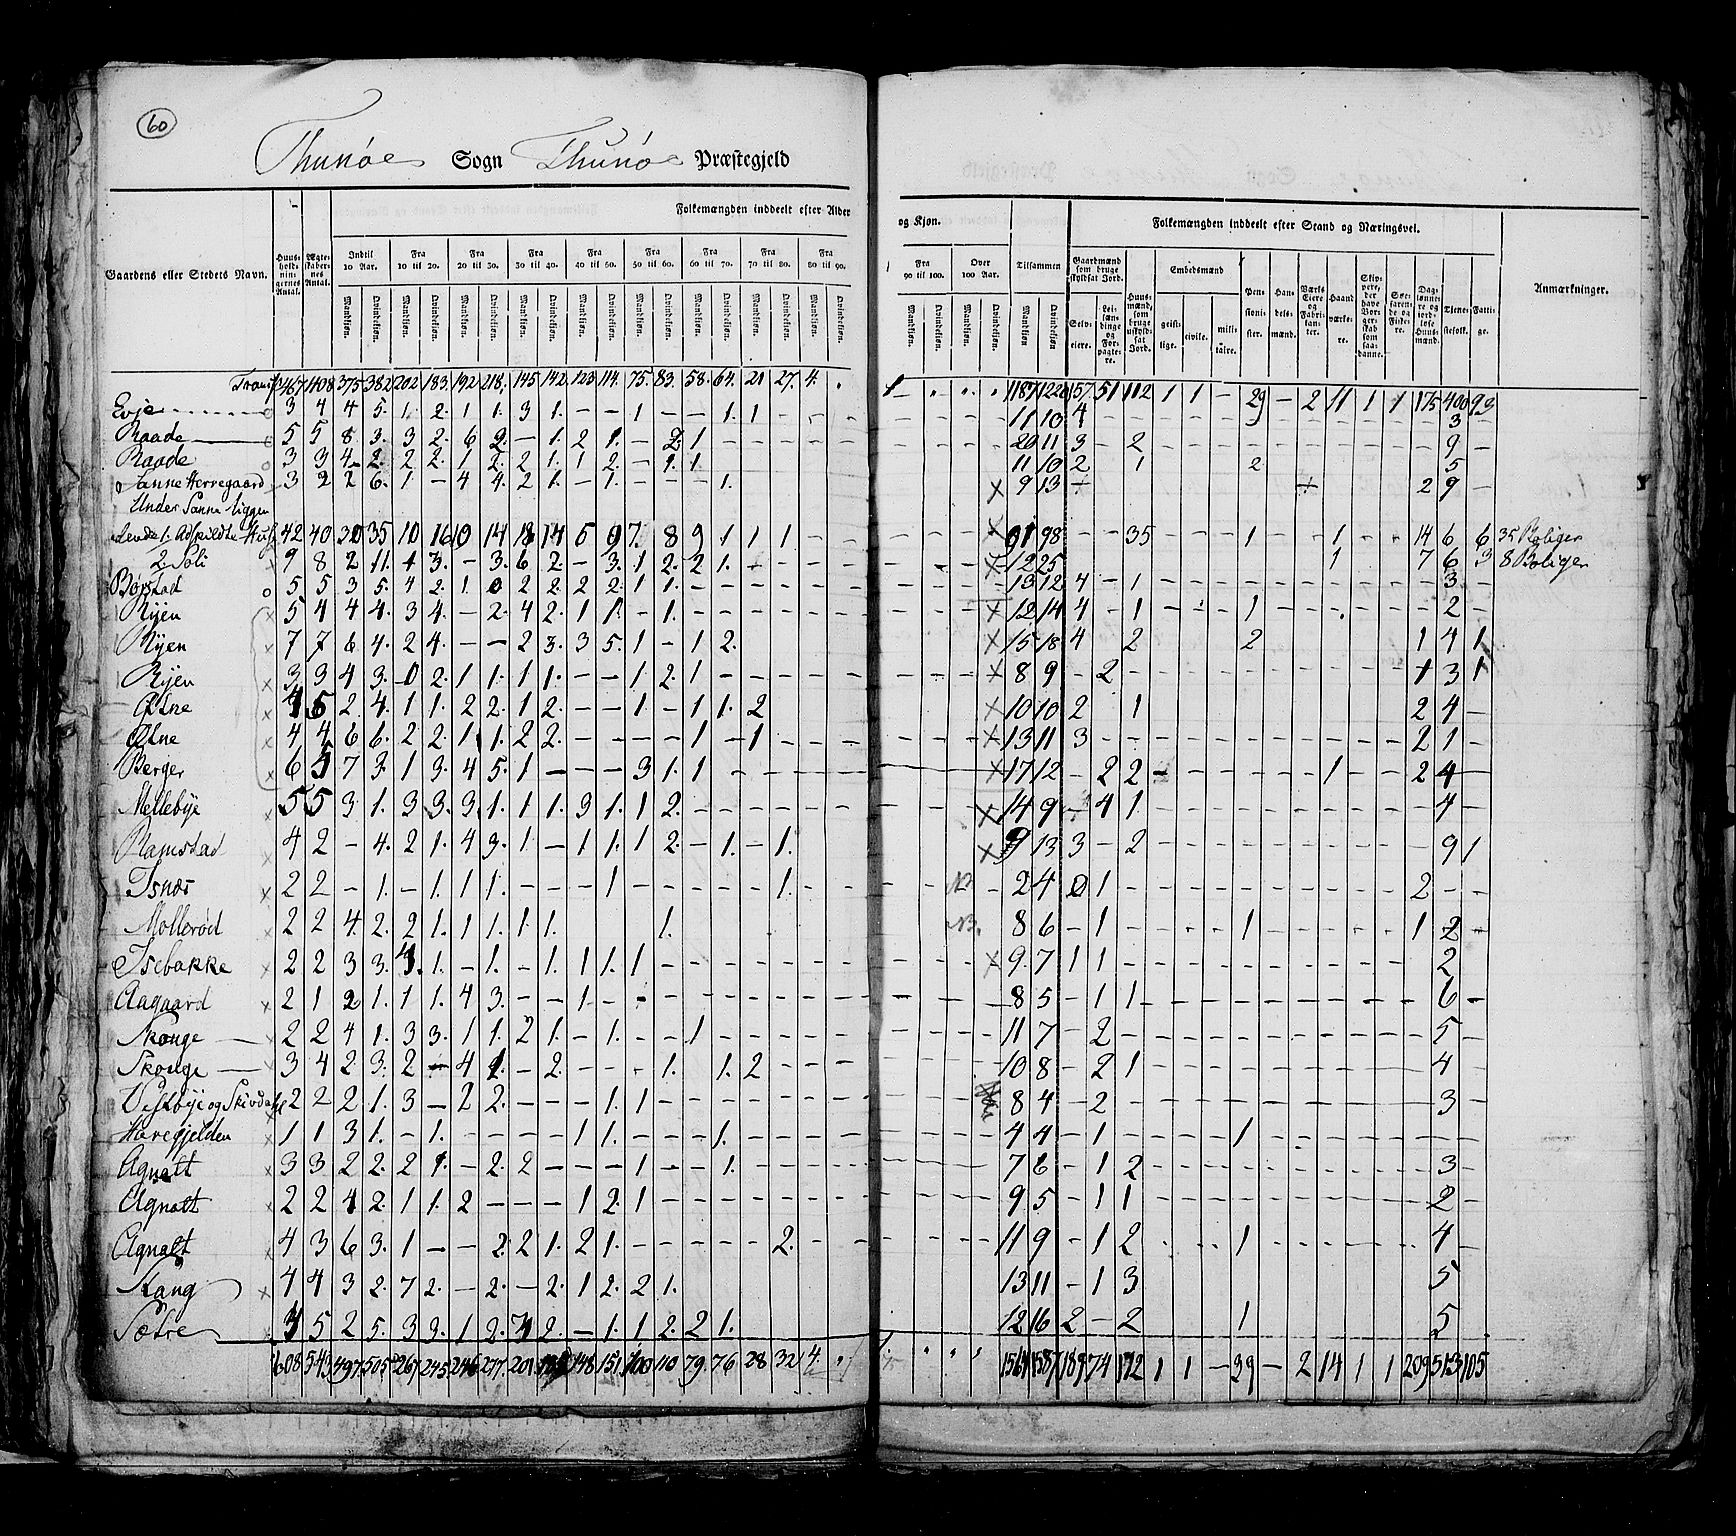 60
Thunøe Sogn Thunøe Præstegjeld
Folkemængden inddeelt efter Alder og Kjøn.
Folkemængden inddeelt efter Stand og Næringsvei.
Gaardens eller Stedets Navn. Huus-hold-nin-gernes Antal. Ægte-skaber-nes Antal. Indtil 10 Aar. Fra 10 til 20. Fra 20 til 30. Fra 30 til 40. Fra 40 til 50. Fra 50 til 60. Fra 60 til 70. Fra 70 til 80. Fra 80 til 90. Fra 90 til 100. Over 100 Aar. Tilsammen
Gaardmænd som bruge skyldsat Jord. Selv-eiere. Lei-lændinge og For-pagtere. Huus-mænd, som bruge skyld-sat Jord. Embedsmænd geist-lige. civile. mili-taire. Pen-sioni-ster. Han-dels-mænd. Værks Eiere og Fabri-kanter. Haand-værke-re. Skip-pere, der have Borger-skab som saa-danne. Søe-farende og Fiske-re. Dag-lønne-re og jord-løse Huus-mænd. Tjene-stefolk. Fatti-ge. Anmærkninger.
Mandkjøn. Qvindekjøn.
Transp. 467 408 375 382 202 183 192 218 145 142 123 114 75 83 58 64 21 27 4 1 1187 1220 157 51 112 1 1 - 29 - 2 11 1 1 175 400 93
Evje 3 4 4 5 1 2 1 1 3 1 - - 1 - - 1 1 - 11 10 4 3
Raade 5 5 8 3 3 2 6 2 - 1 2 1 - 2 1 20 11 3 - 2 9
Raade 3 3 4 2 2 2 1 2 2 1 1 2 - 1 1 11 10 2 - 1 2 5
Sanne Herregaard 3 2 2 6 1 - 4 4 2 1 - 1 - - - 1 9 13 2 9
Under Sanne liggen
dende 1. Adspildte Huse 42 40 30 35 10 16 10 14 18 14 5 9 7 8 9 1 1 1 91 98 35 1 1 14 6 6 35 Boliger
2. Soli 9 8 2 11 1 3 - 3 6 2 - 3 1 2 2 1 12 25 1 7 6 3 8 Boliger
Børstad 5 5 3 5 4 2 1 0 2 2 2 2 1 1 13 12 4 - 1 3
Ryen 5 4 4 4 3 4 - 2 4 2 1 1 - 1 12 14 4 - 1 1 2
Ryen 7 7 6 4 2 4 - - 2 3 3 5 1 - 1 2 15 18 4 2 2 1 4 1
Ryen 3 3 4 3 0 2 1 1 1 1 - - 1 2 1 8 9 - 2 1 3 1
Østne 4 5 2 4 1 1 2 2 1 2 - - 1 - 1 1 2 10 10 2 1 2 4
Østne 4 4 6 6 2 2 1 1 2 2 - - - - 1 - 1 13 11 3 2 1
Berger 6 5 7 3 1 3 4 5 1 - - - 3 1 1 17 12 - 2 2 1 2 4
Mellebye 5 5 3 1 3 3 3 1 1 1 3 1 1 2 14 9 4 1 4
Ramstad 4 2 - 4 2 1 4 3 1 - 1 1 1 2 - 1 - 1 9 13 3 - 2 9 1
Isnæs 2 2 - 1 - 1 1 1 - - - 1 - - - - - 1 2 4 0 1 2
Møllerød 2 2 4 2 2 1 1 1 1 1 1 8 6 - 1 1 1 2
Isebakke 2 2 3 3 4 1 - 1 - 1 1 1 1 9 7 1 1 2
Aagaard 2 1 2 1 1 1 4 3 - - 1 8 5 - 1 1 6
Skonge 2 2 4 1 3 3 1 1 2 1 - 1 - - 1 11 7 - 2 5
Skonge 3 4 2 3 2 - 4 1 - 2 - - - 1 - 1 2 10 8 - 2 1 4
Vestbye og Skivdahl 2 2 2 1 3 - 2 2 - - - 1 1 8 4 - 2 3
Haregjelden 1 1 3 1 - 1 - - - - 1 1 - - - 1 4 4 - 1 1
Agnalt 3 3 2 2 2 1 - 2 2 - - - 1 - - 1 7 6 - 1 2 3
Agnalt 2 2 4 2 1 1 2 - - - 1 2 1 9 5 - 1 1 2
Agnalt 4 3 6 3 1 - - 2 2 1 2 1 - - - - - 2 11 9 - 1 2 1 4
Stang 4 4 3 2 7 2 - 2 - 2 1 2 2 1 13 11 - 1 3 5
Sætre 3 5 2 5 3 3 1 2 4 2 - 1 1 2 2 1 12 16 2 - 2 1 5
608 543 497 505 267 245 246 277 201 148 151 100 110 79 76 28 32 4 1 1564 1587 189 74 172 1 1 - 39 - 2 14 1 1 209 513 105